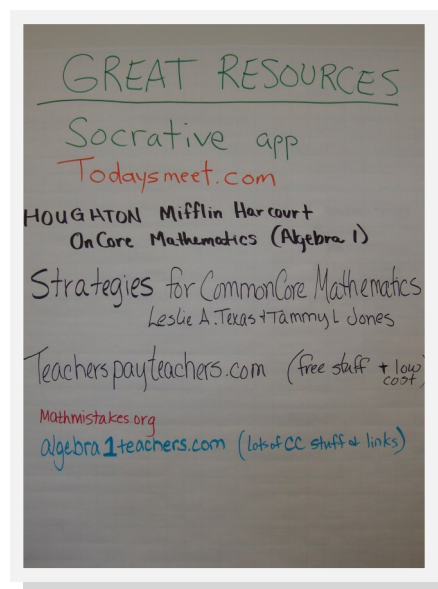 GREAT RESOURCES
Socrative app
Todaysmeet.com
HOUGHTON Mifflin Harcourt
OnCore Mathematics (Algebra 1)
Strategies for CommonCore Mathematics
Leslie A. Texas + Tammy L Jones
Teacherspayteachers.com (free stuff + low
cost)
Mathmistakes.org
algebra1teachers.com (lots of CC stuff & links)